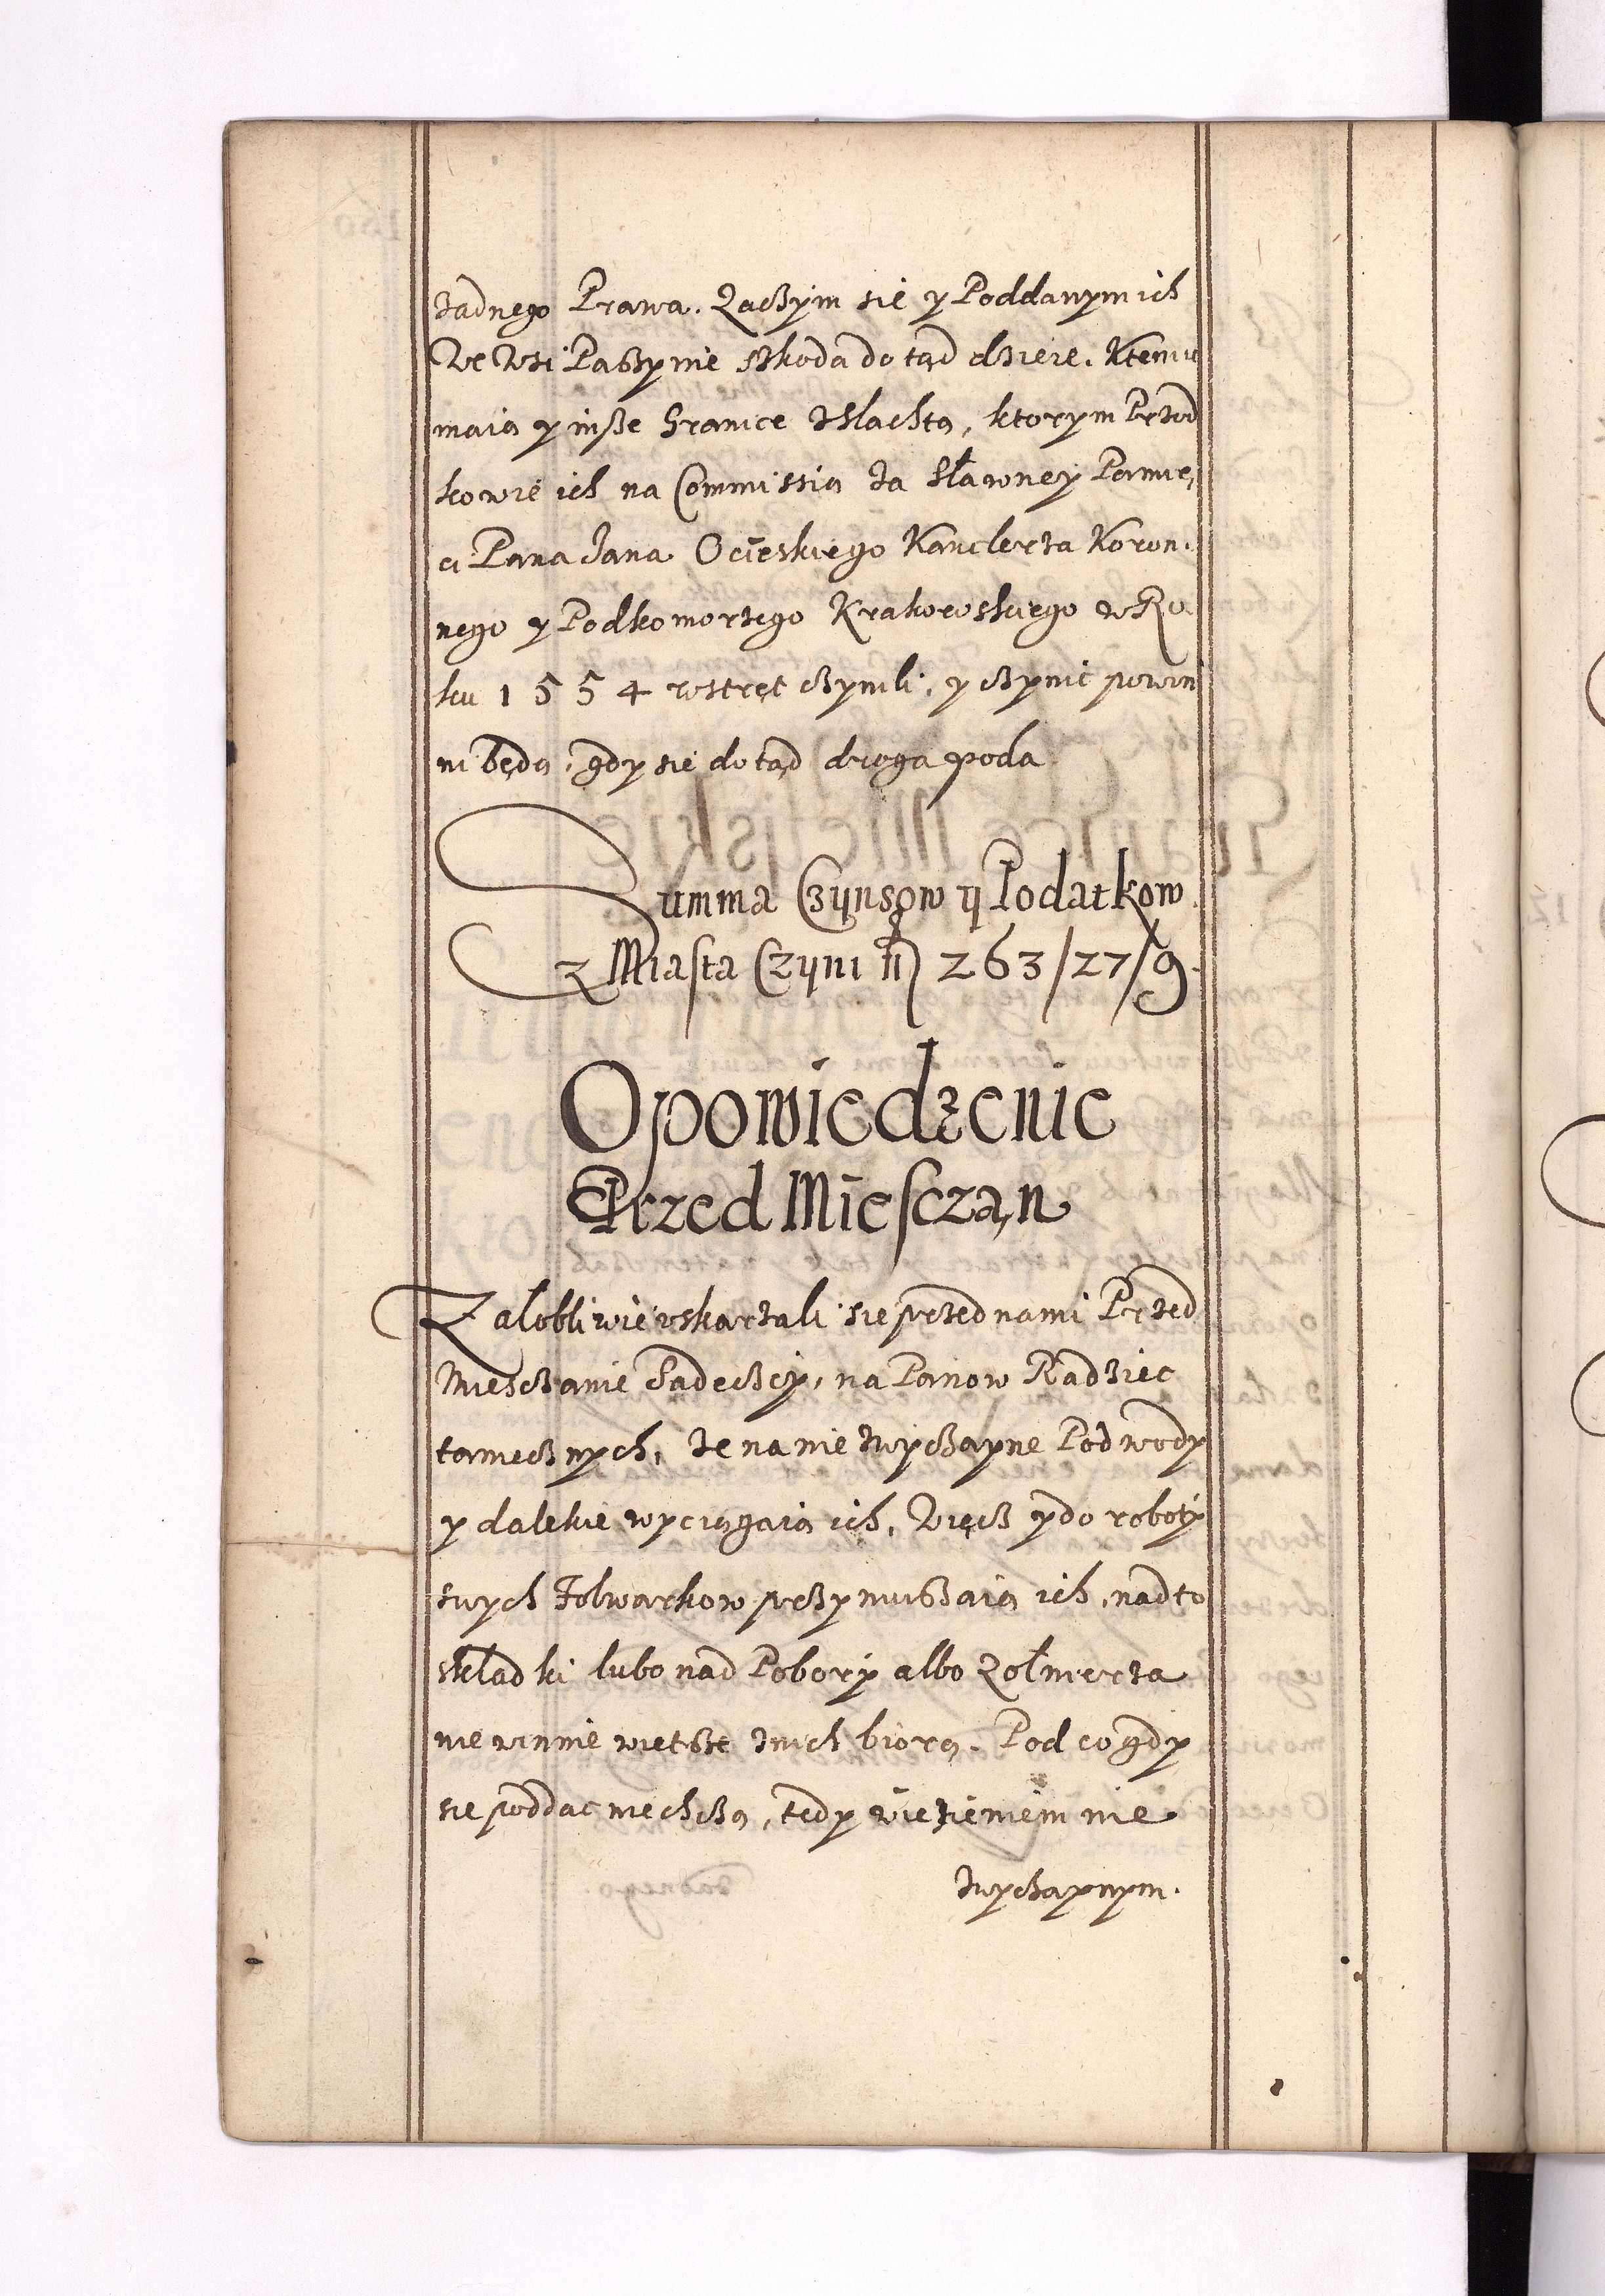 żadnego Prawa. Zaczym się y Poddanym ich
We Wsi Paszynie szkoda do tąd dzieie. Ktemu
maią y insze Granice zSlachtą, ktorym Przod
kowie ich na Commissią za Sławney Pamię,
ci Pana Jana Ocieskiego Kanclerza Koron.
nego y Podkomorzego Krakowskiego w Ro
ku 1554 wstręt czynili, y czynic powin
ni będą, gdy się do tąd droga poda
Summa Czynsow y Podatkow
z Miasta Czyni fl 263/27/9.
Opowiedzenie
Przed Miesczan
Zalobliwie uskarzali sie przed nami Przed
Miesczanie Sadeczcy, na Panow Radziec
tamecznych, ze na nie zwyczayne Podwody
y dalekie wyciągaią ich, Więcz y do roboty
swych Folwarkow przymuszaią ich, nadto
składki lubo nad Pobory albo Zołnierza
niewinnie wietsze znich biorą. Pod co gdy
sie poddac niechczą, tedy więzieniem nie
zwyczaynym.